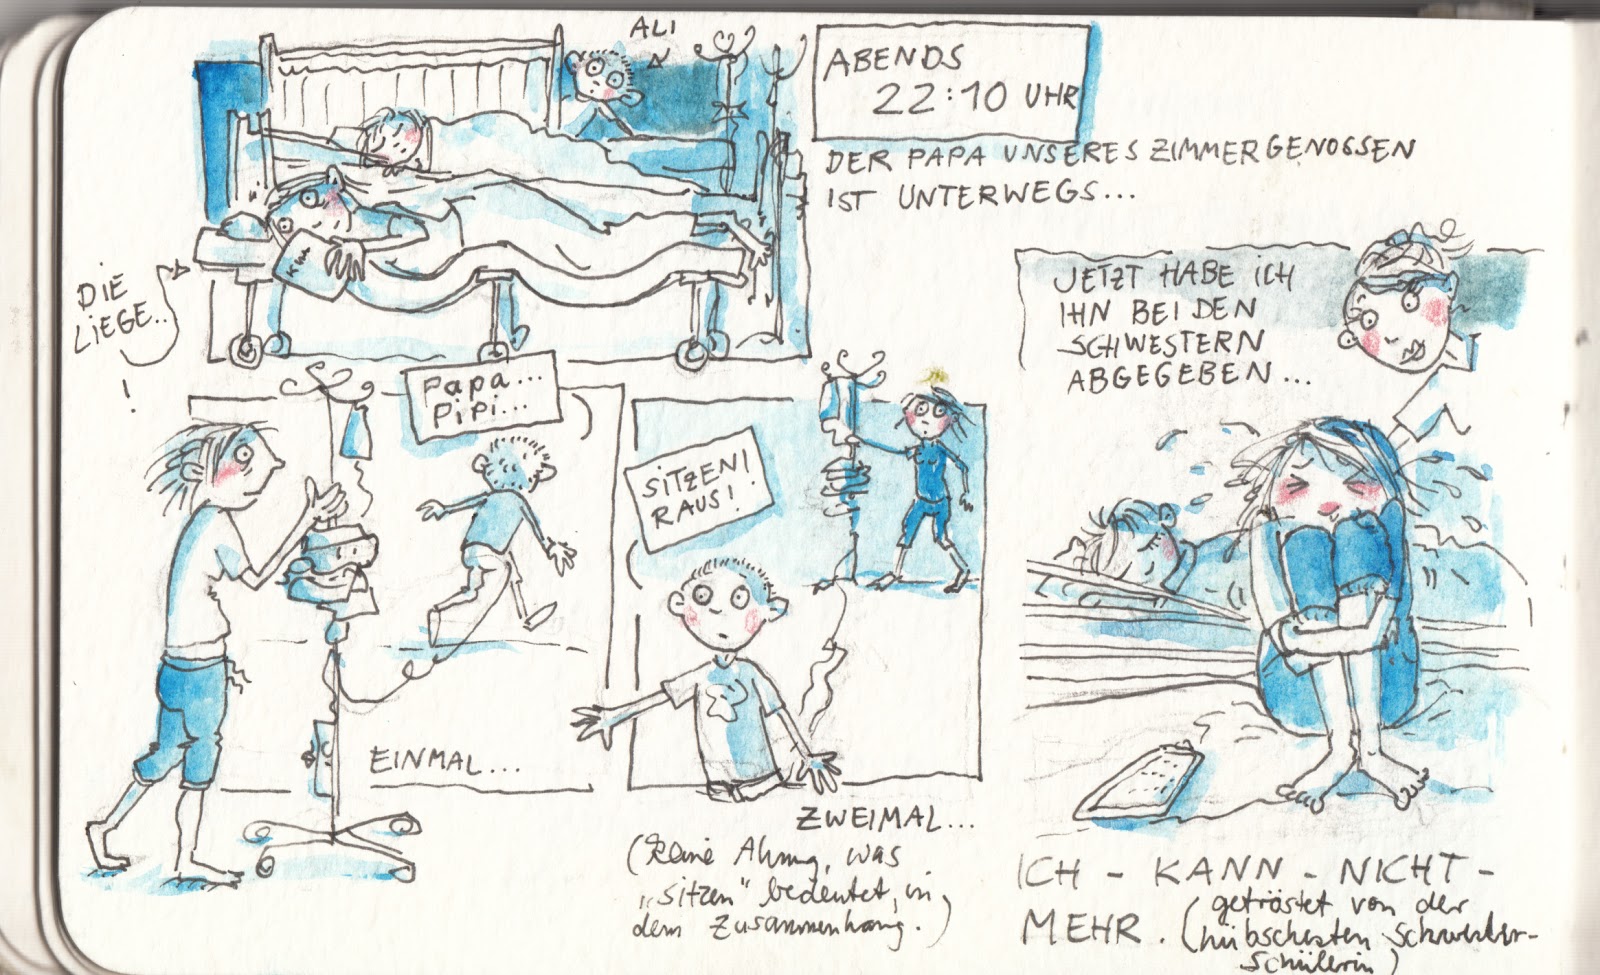 ALI
ABENDS
22:10 UHR
DER PAPA UNSERES ZIMMERGENOSSEN
IST UNTERWEGS...
DIE
LIEGE..
!
Papa...
PiPi...
EINMAL...
SITZEN!
RAUS!
ZWEIMAL...
(Keine Ahnung, was
„sitzen“ bedeutet, in
dem Zusammenhang.)
JETZT HABE ICH
IHN BEI DEN
SCHWESTERN
ABGEGEBEN...
ICH - KANN - NICHT -
MEHR. (getröstet von der
hübschesten Schwester-
Schülerin)